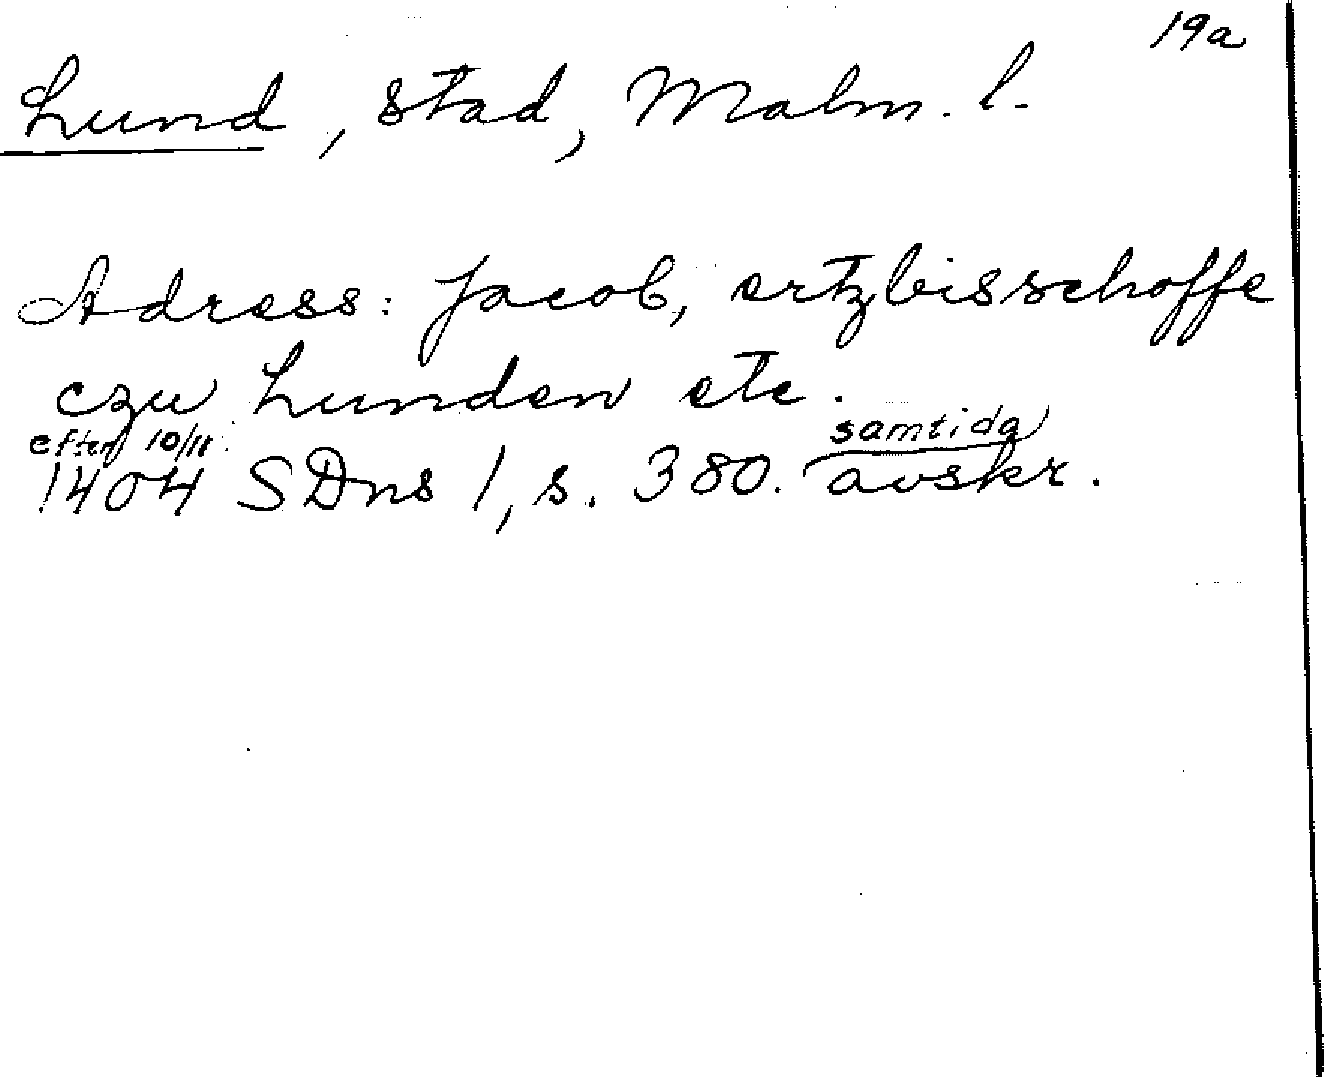 19a
Lund, stad, Malm. l.
Adress: Jacob, ertzbisschoffe
czu Lunden etc.
efter 10/11 samtida
1404 SDns 1, s. 380. avskr.